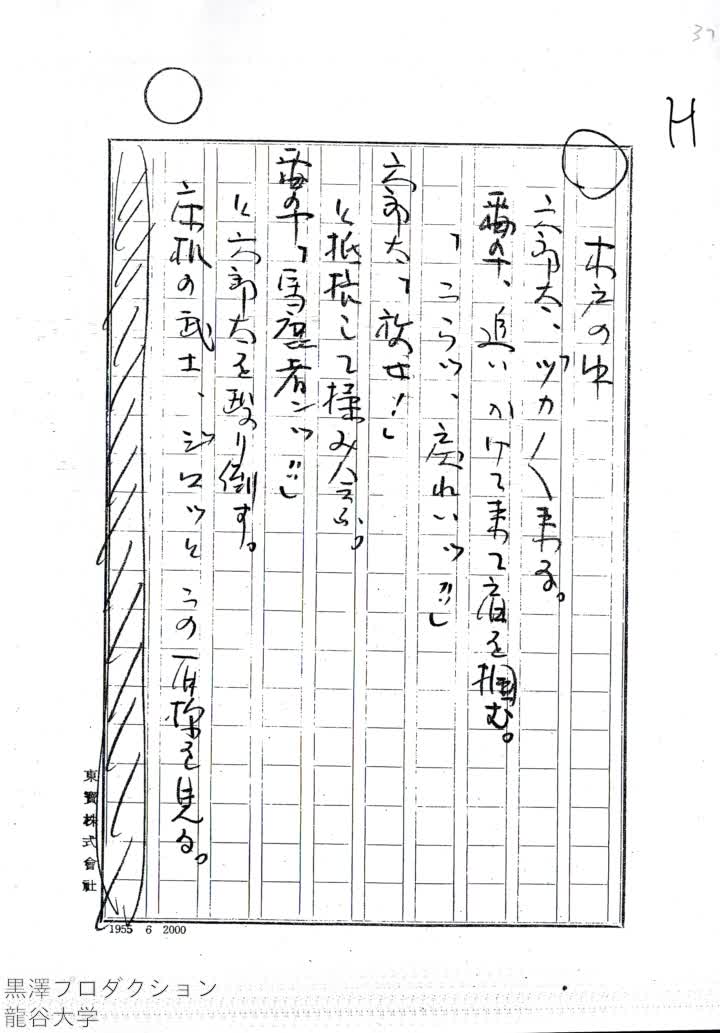 37
H
木戸の中
六郎太、ツカ〱来る。
番卒、追いかけて来て肩を掴む。
「こらッ、戻れいッ‼」
六郎太「放せ！」
と抵抗して揉み合ふ。
番卒「馬鹿者ンッ‼」
と六郎太を殴り倒す。
床机の武士、ジロッとこの有様を見る。
東寶株式會社
1955 6 2000
黒澤プロダクション
龍谷大学